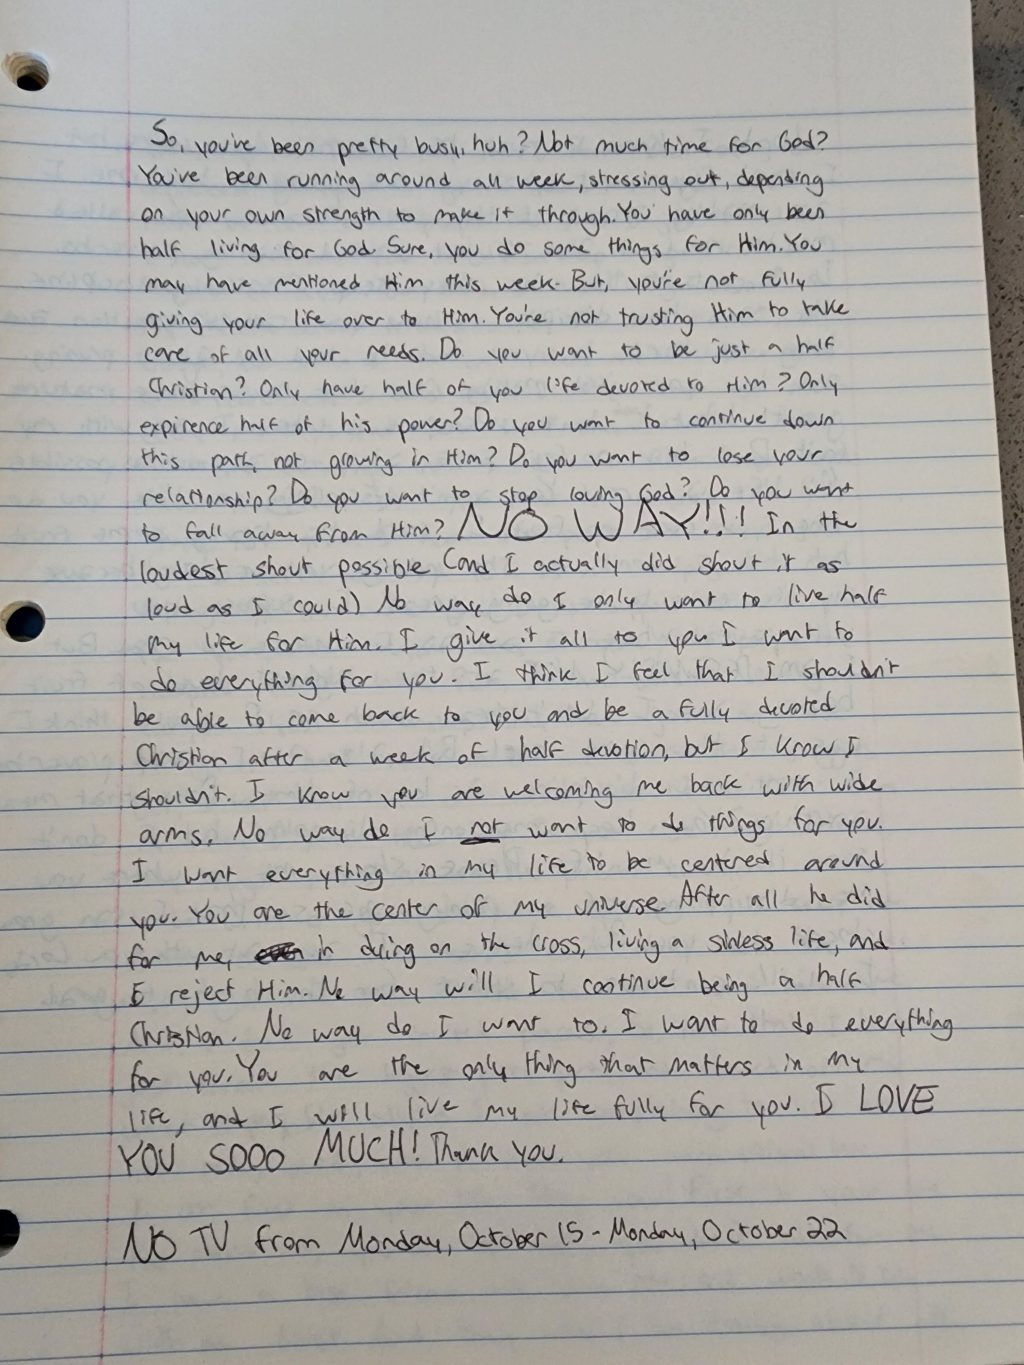 So, you've been pretty busy, huh? Not much time for God?
You've been running around all week, stressing out, depending
on your own strength to make it through. You have only been
half living for God. Sure, you do some things for Him. You
may have mentioned Him this week. But, you're not fully
giving your life over to Him. You're not trusting Him to take
care of all your needs. Do you want to be just a half
Christian? Only have half of you life devoted to Him? Only
expirence half of his power? Do you want to continue down
this path, not growing in Him? Do you want to lose your
relationship? Do you want to stop loving God? Do you want
to fall away from Him? NO WAY!!! In the
loudest shout possible (and I actually did shout it as
loud as I could) No way do I only want to live half
my life for Him. I give it all to you I want to
do everything for you. I think I feel that I shouldn't
be able to come back to you and be a fully devoted
Christian after a week of half devotion, but I know I
shouldn't. I know you are welcoming me back with wide
arms. No way do I not want to do things for you.
I want everything in my life to be centered around
you. You are the center of my universe. After all he did
for me, in dying on the cross, living a sinless life, and
I reject Him. No way will I continue being a half
Christian. No way do I want to. I want to do everything
for you. You are the only thing that matters in my
life, and I will live my life fully for you. I LOVE
YOU SOOO MUCH! Thank you.
NO TV from Monday, October 15 - Monday, October 22